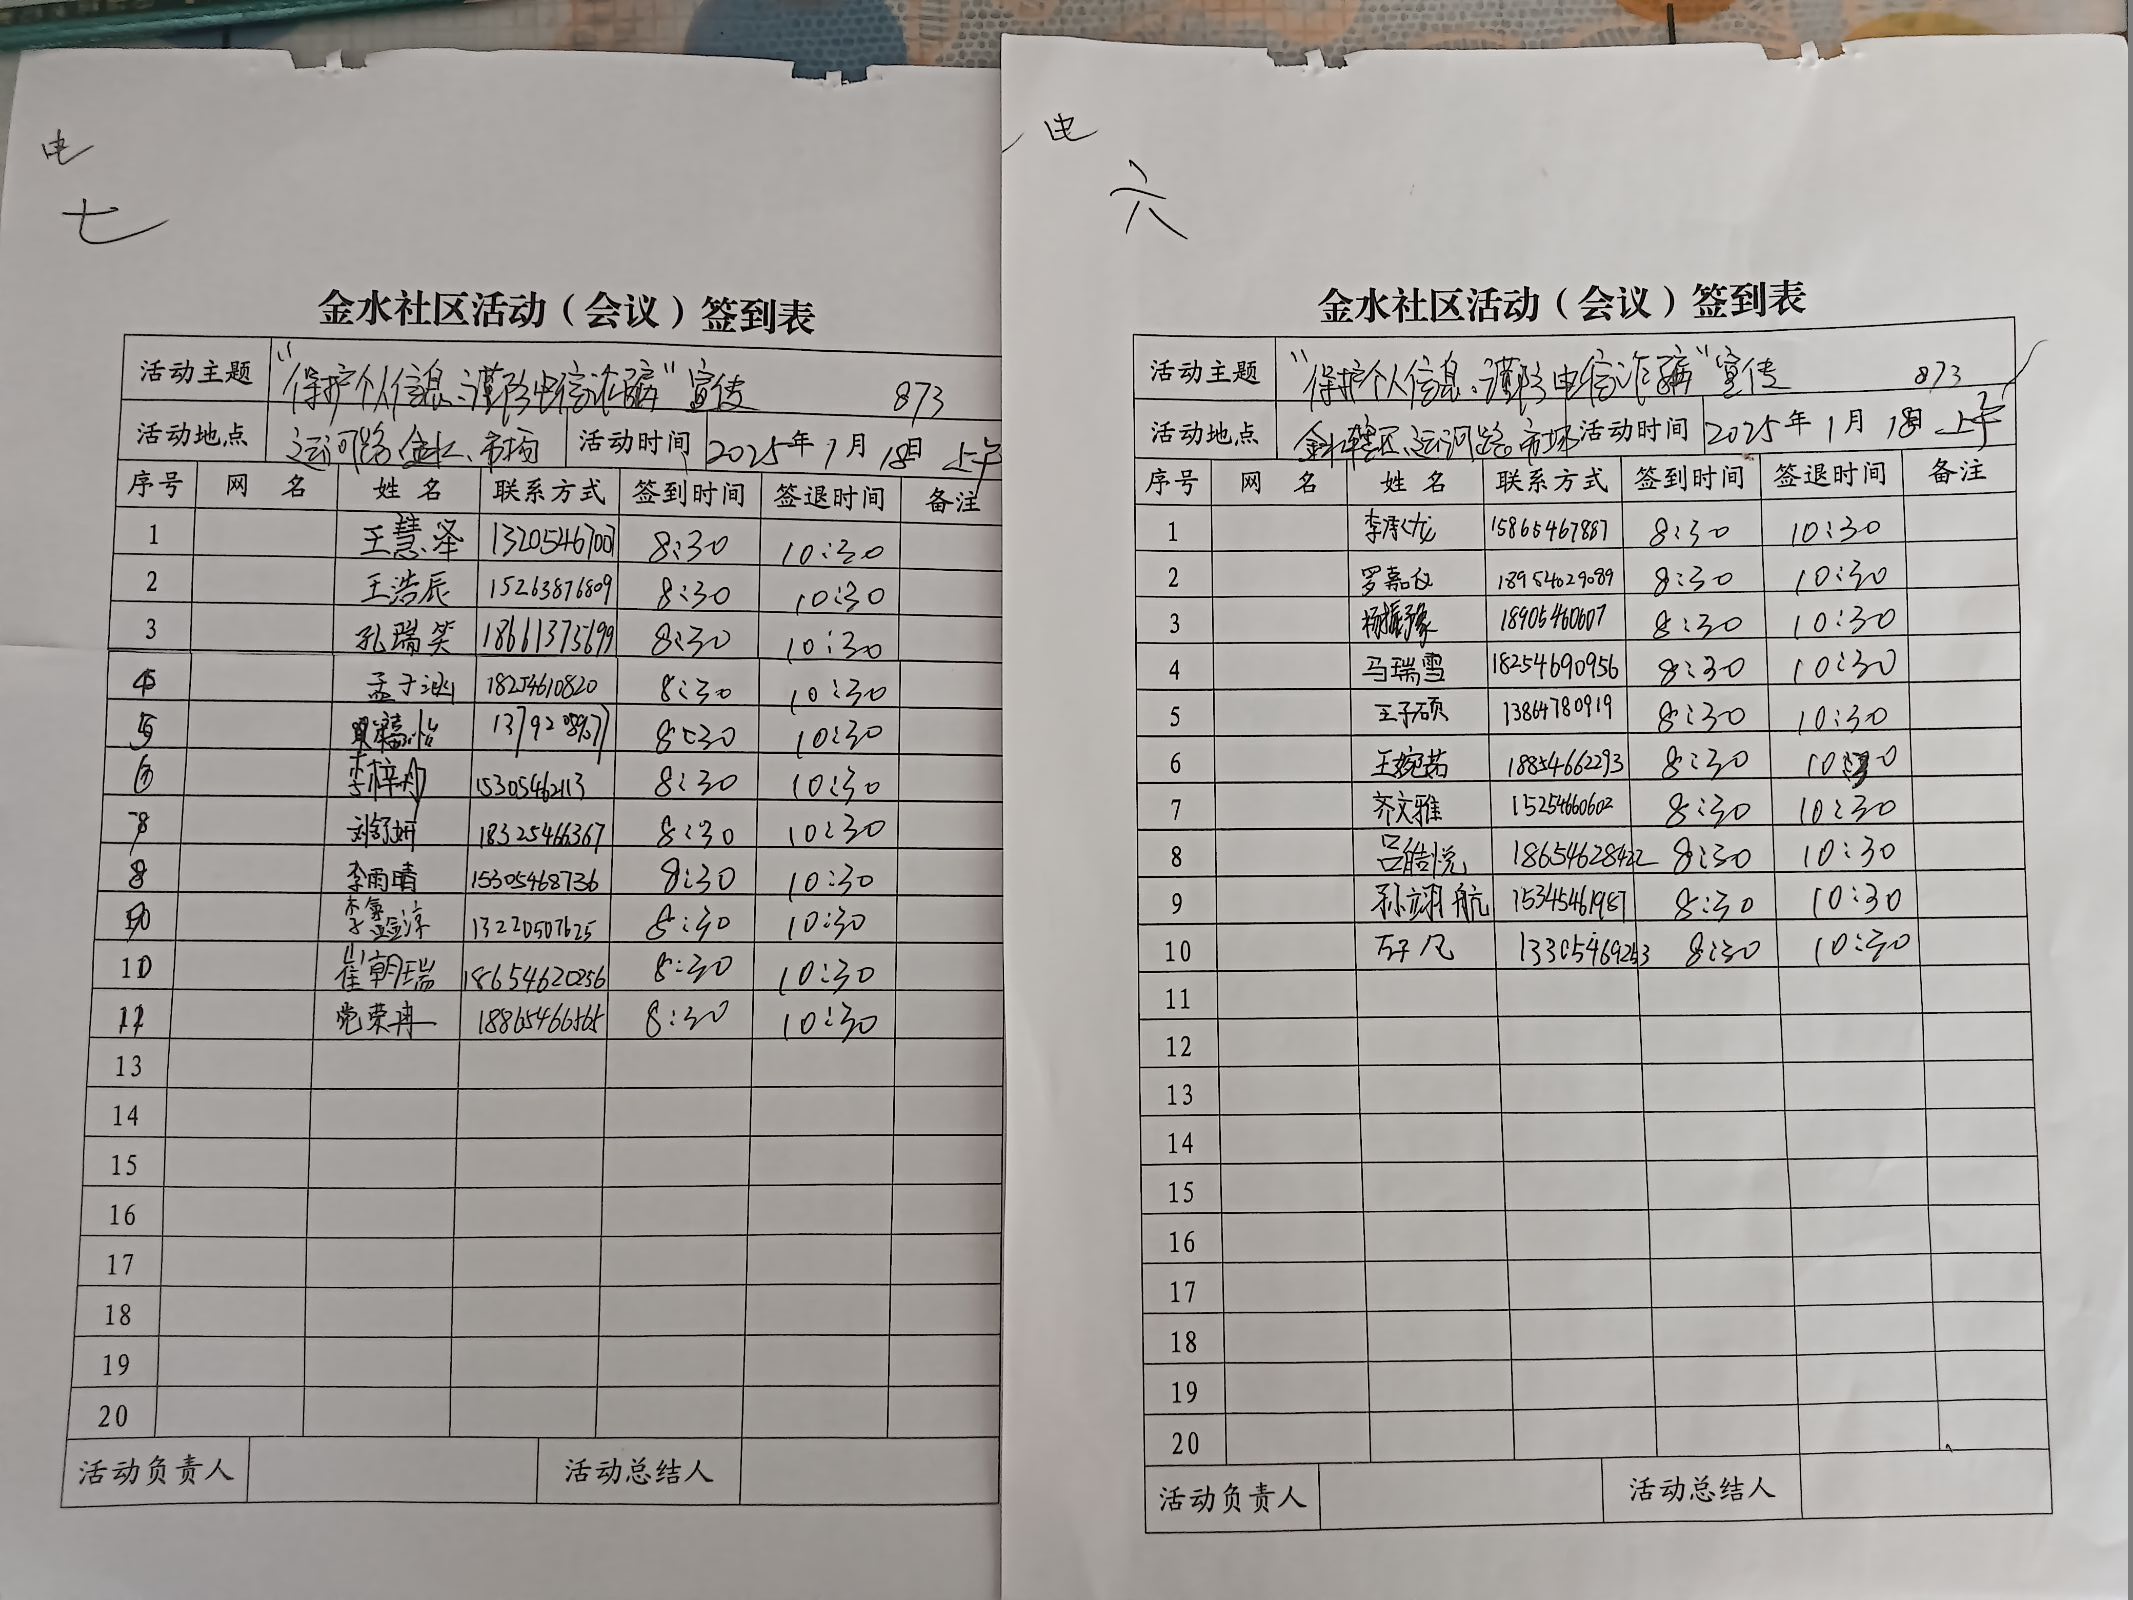 电
七
金水社区活动（会议）签到表
活动主题 "保护个人信息、谨防电信诈骗"宣传 873
活动地点 运河路金水市场 活动时间 2025年1月18日 上午
序号 网 名 姓 名 联系方式 签到时间 签退时间 备注
1 王慧泽 8:30 10:30
2 王浩辰 15263876809 8:30 10:30
3 孔瑞笑 18661375699 8:30 10:30
4 孟子涵 18254610820 8:30 10:30
5 8:30 10:30
6 李梓丹 15305462113 8:30 10:30
7 刘舒妍 18325466367 8:30 10:30
8 李雨晴 15305468736 8:30 10:30
13220507625 8:30 10:30
崔朝瑞 18654620256 8:30 10:30
党荣冉 18865466565 8:30 10:30
13
14
15
16
17
18
19
20
活动负责人 活动总结人
电
六
金水社区活动（会议）签到表
活动主题 "保护个人信息、谨防电信诈骗"宣传 873
活动地点 金水辖区运河路市场 活动时间 2025年1月18日 上午
序号 网 名 姓 名 联系方式 签到时间 签退时间 备注
1 15865467887 8:30 10:30
2 罗嘉仪 18954029089 8:30 10:30
3 18905460607 8:30 10:30
4 马瑞雪 18254690956 8:30 10:30
5 王子硕 13864780919 8:30 10:30
6 王婉茹 18854662293 8:30 10:30
7 齐文雅 15254660602 8:30 10:30
8 吕皓悦 18654628422 8:30 10:30
9 孙翊航 15345461987 8:30 10:30
10 8:30 10:30
11
12
13
14
15
16
17
18
19
20
活动负责人 活动总结人